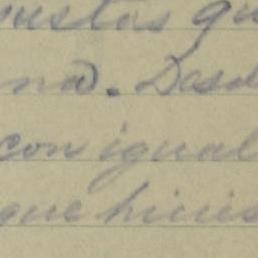 ustos qu
na. Desd
con igual
que hicis